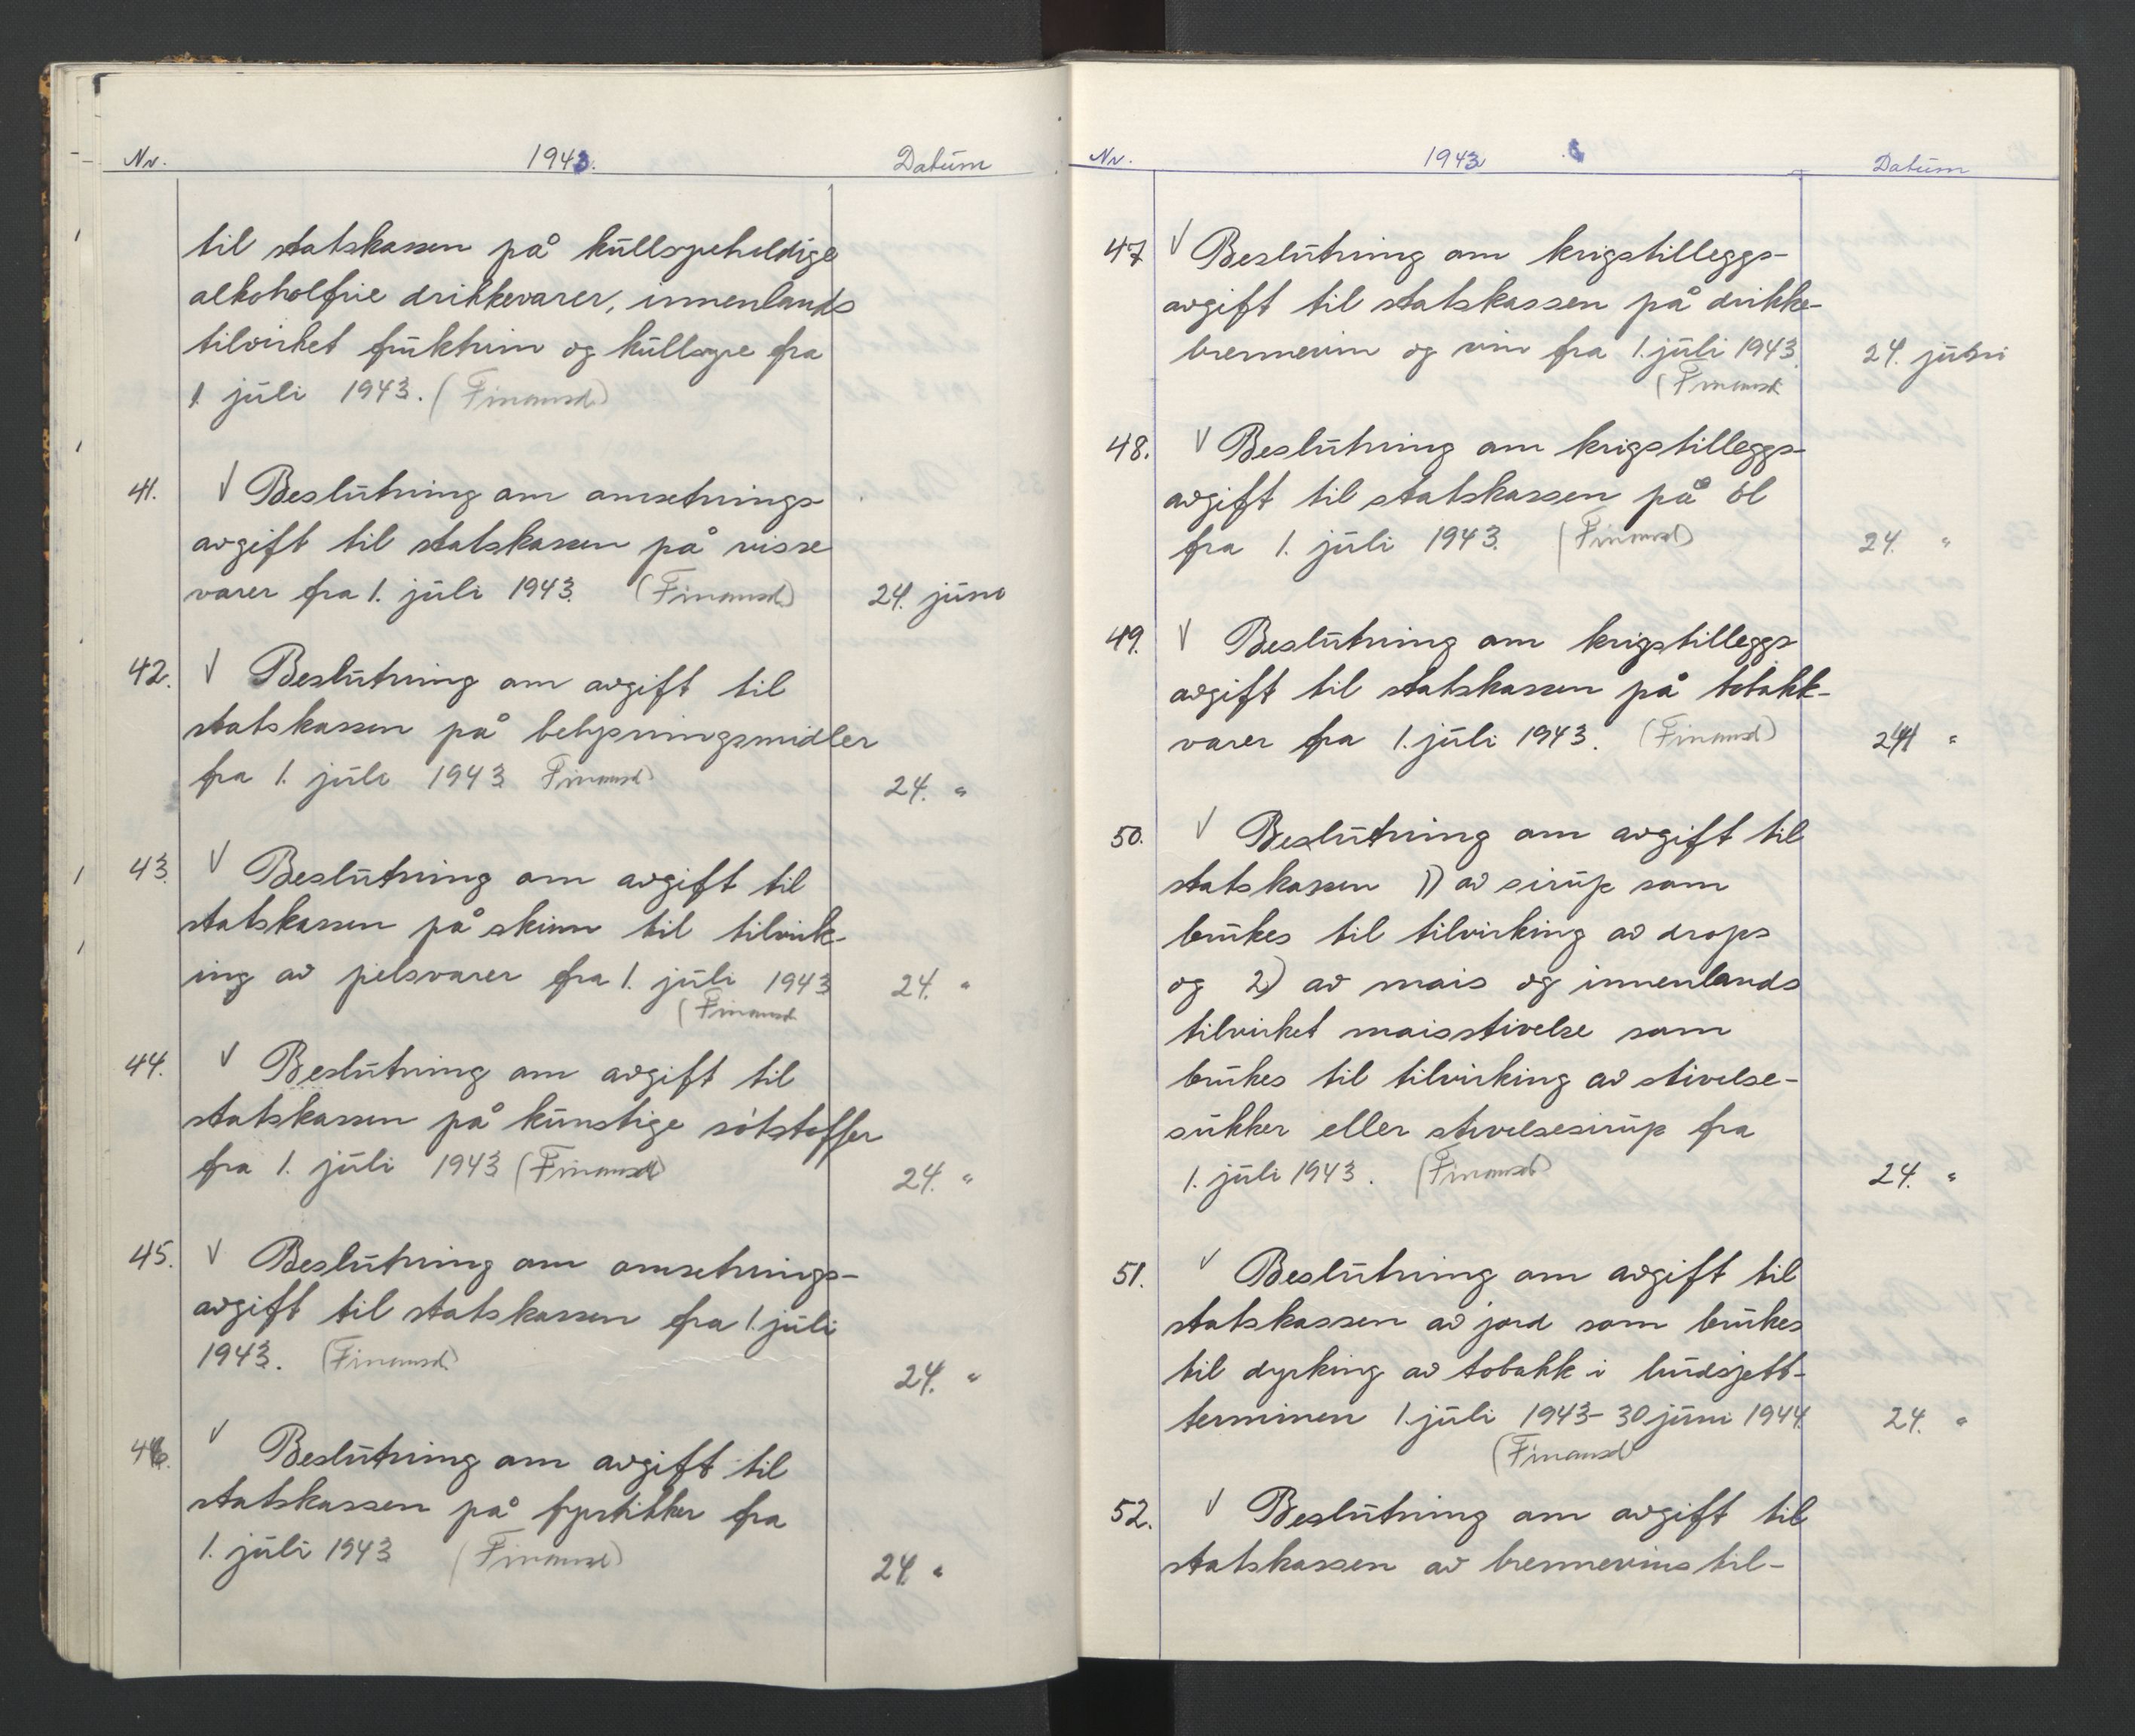 Nr. 1943. Datum
til statskassen på kullsyreholdige
alkoholfrie drikkevarer, innenlands
tilvirket fruktvin og kullsyre fra
1. juli 1943. (Finansd.)
41. V Beslutning om omsetnings-
avgift til statskassen på visse
varer fra 1. juli 1943. (Finansd.) 24. juni
42. V Beslutning om avgift til
statskassen på belysningsmidler
fra 1. juli 1943 Finansd. 24. "
43. V Beslutning om avgift til
statskassen på skinn til tilvirk-
ing av pelsvarer fra 1. juli 1943 24. "
(Finansd.
44. V Beslutning om avgift til
statskassen på kunstige søtstoffer
fra 1. juli 1943 (Finansd) 24. "
45. V Beslutning om omsetnings-
avgift til statskassen fra 1. juli
1943. (Finansd.) 24. "
46. V Beslutning om avgift til
statskassen på fyrstikker fra
1. juli 1943 (Finansd) 24. "
Nr. 1943 Datum
47 V Beslutning om krigstilleggs-
avgift til statskassen på drikke-
brennevin og vin fra 1. juli 1943. 24. juni
(Finansd.
48. V Beslutning om krigstilleggs-
avgift til statskassen på øl
fra 1. juli 1943. (Finansd) 24. "
49. V Beslutning om krigstilleggs
avgift til statskassen på tobakk-
varer fra 1. juli 1943. (Finansd) 24 "
50. V Beslutning om avgift til
statskassen 1) av sirup som
brukes til tilvirking av drops
og 2) av mais og innenlands
tilvirket maisstivelse som
brukes til tilvirking av stivelse-
sukker eller stivelsesirup fra
1. juli 1943. (Finansd) 24. "
51. V Beslutning om avgift til
statskassen av jord som brukes
til dyrking av tobakk i budsjett-
terminen 1. juli 1943 - 30 juni 1944. 24. "
(Finansd
52. V Beslutning om avgift til
statskassen av brennevinstil-